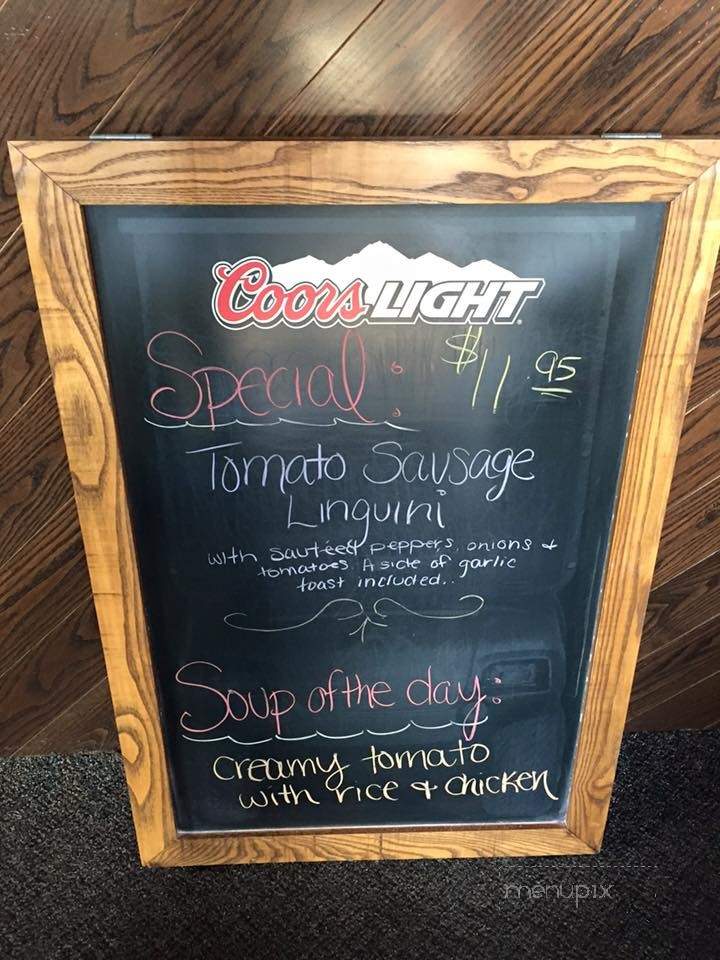 Coors LIGHT
Special: $11.95
Tomato Sausage
Linguini
with sautéed peppers, onions &
tomatoes. A side of garlic
toast included..
Soup of the day:
creamy tomato
with rice & chicken
menupix